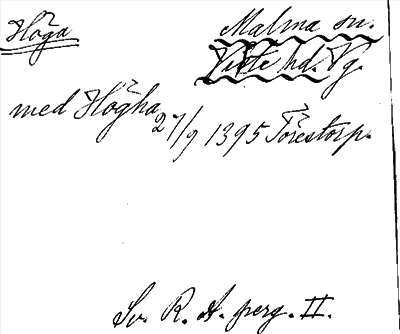 Höga
Malma sn.
Viste hd. Vg.
med Högha 27/9 1395 Torestorp.
Sv. R. A. perg. II.